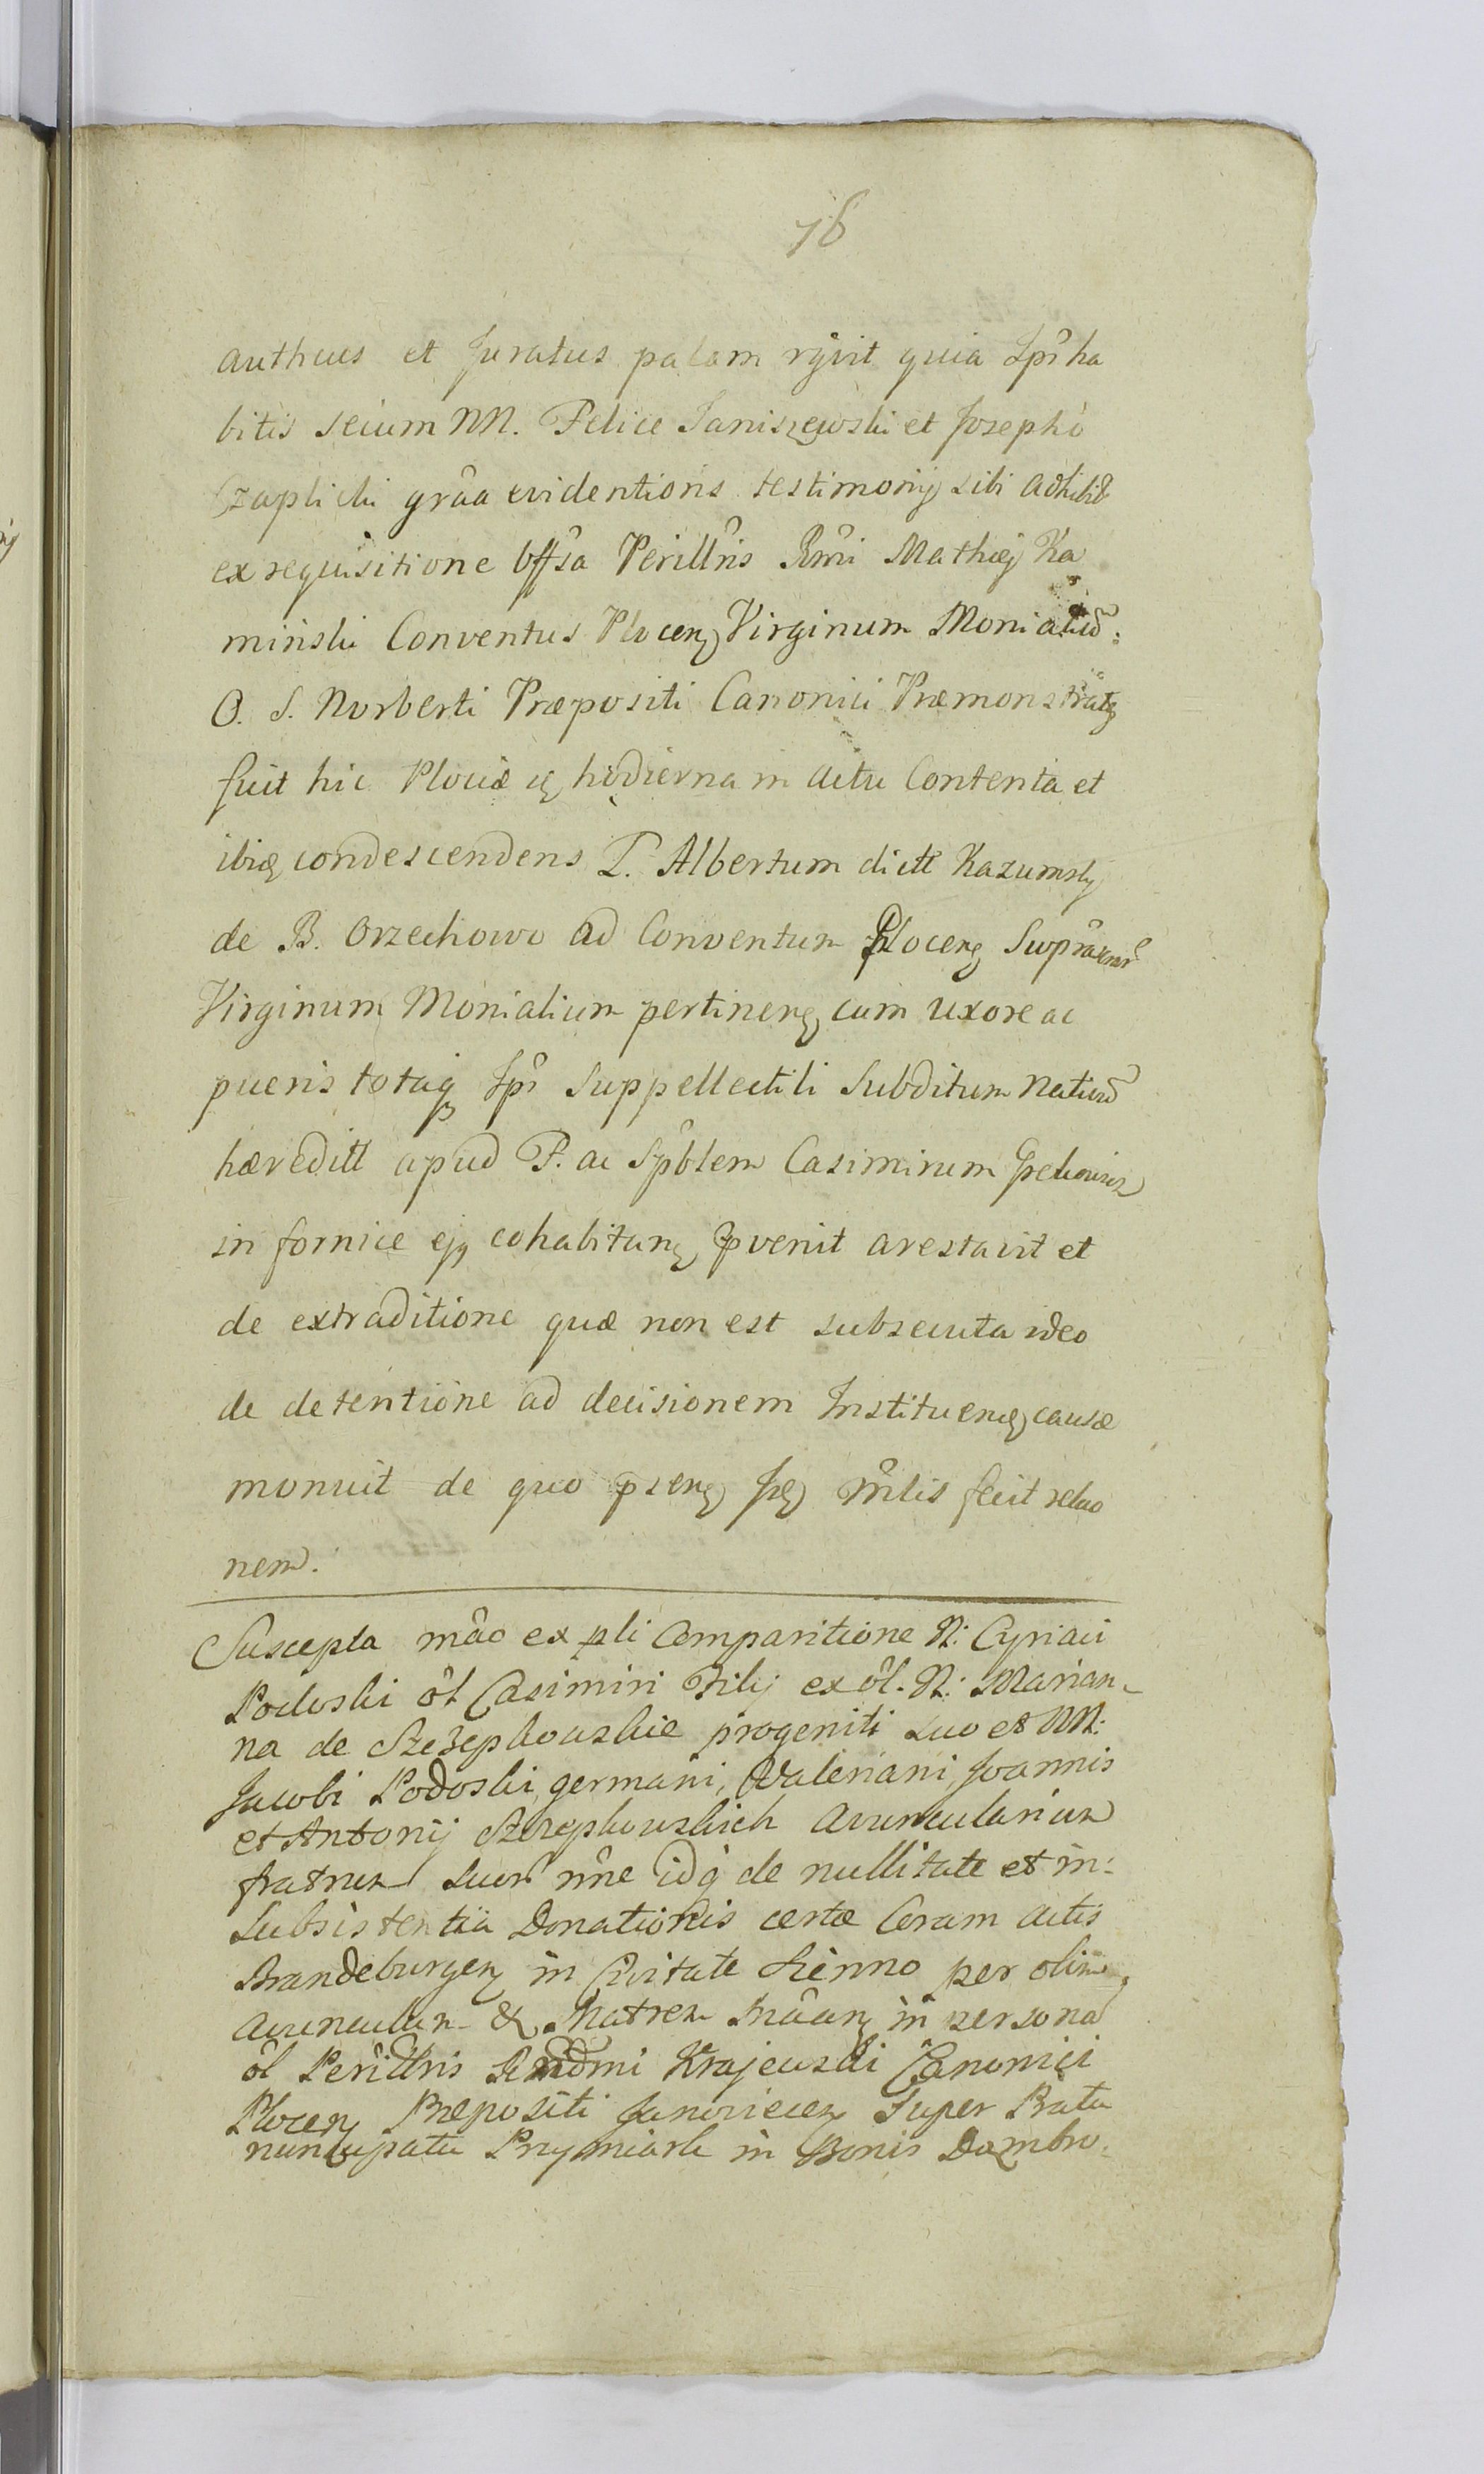 78
authcus et Juratus palam rgvit quia Ipr ha
bitis secum NN. Felice Janiszewski et Josepho
Czaplicki grâa evidentioris testimonij sibi adhibit
ex requisitione offsa Perillris Rmi Mathæj Ka
minski Conventus Plocen Virginum Monialiũ:
O. S. Norberti Præpositi Canonici Præmonstraten
fuit hic Plociæ hodierna in actu Contenta et
ibiq condescendens L. Albertum dictt Kazumsky
de B. Orzechowo ad Conventum Plocen Supra
Virginum Monialium pertinen cum uxore ac
pueris totaq Ipr Suppellectili Subditum
hæreditt apud F. ac Spblem Casimirum
in fornice ejq cohabitan pvenit arestavit et
de extraditione quæ non est subsecuta ideo
de detentione ad decisionem Instituen causæ
monuit de quo psens mlis fecit relao
nem.
Suscepta mâo ex pli Comparitione N: Cypriaci
Podoski ôl Casimiri Filij ex ôl. N: Marian-
na de Szczepkowskie progeniti suo et NN:
Jacobi Podoski, germani, Valeriani, Joannis
et Antonij Szczepkowskich Avuncularium
fratrum suor nne idq de nullitate et in:
Subsistentia Donationis certæ Coram Actis
Brandeburgen in Civitate per olim
avunculum & Matrem in persona
ôl Perillris Rndmi Krajewski Canonici
Plocen Præpositi Super Prata
nuncupata Przymiarki in Bonis Dambro.